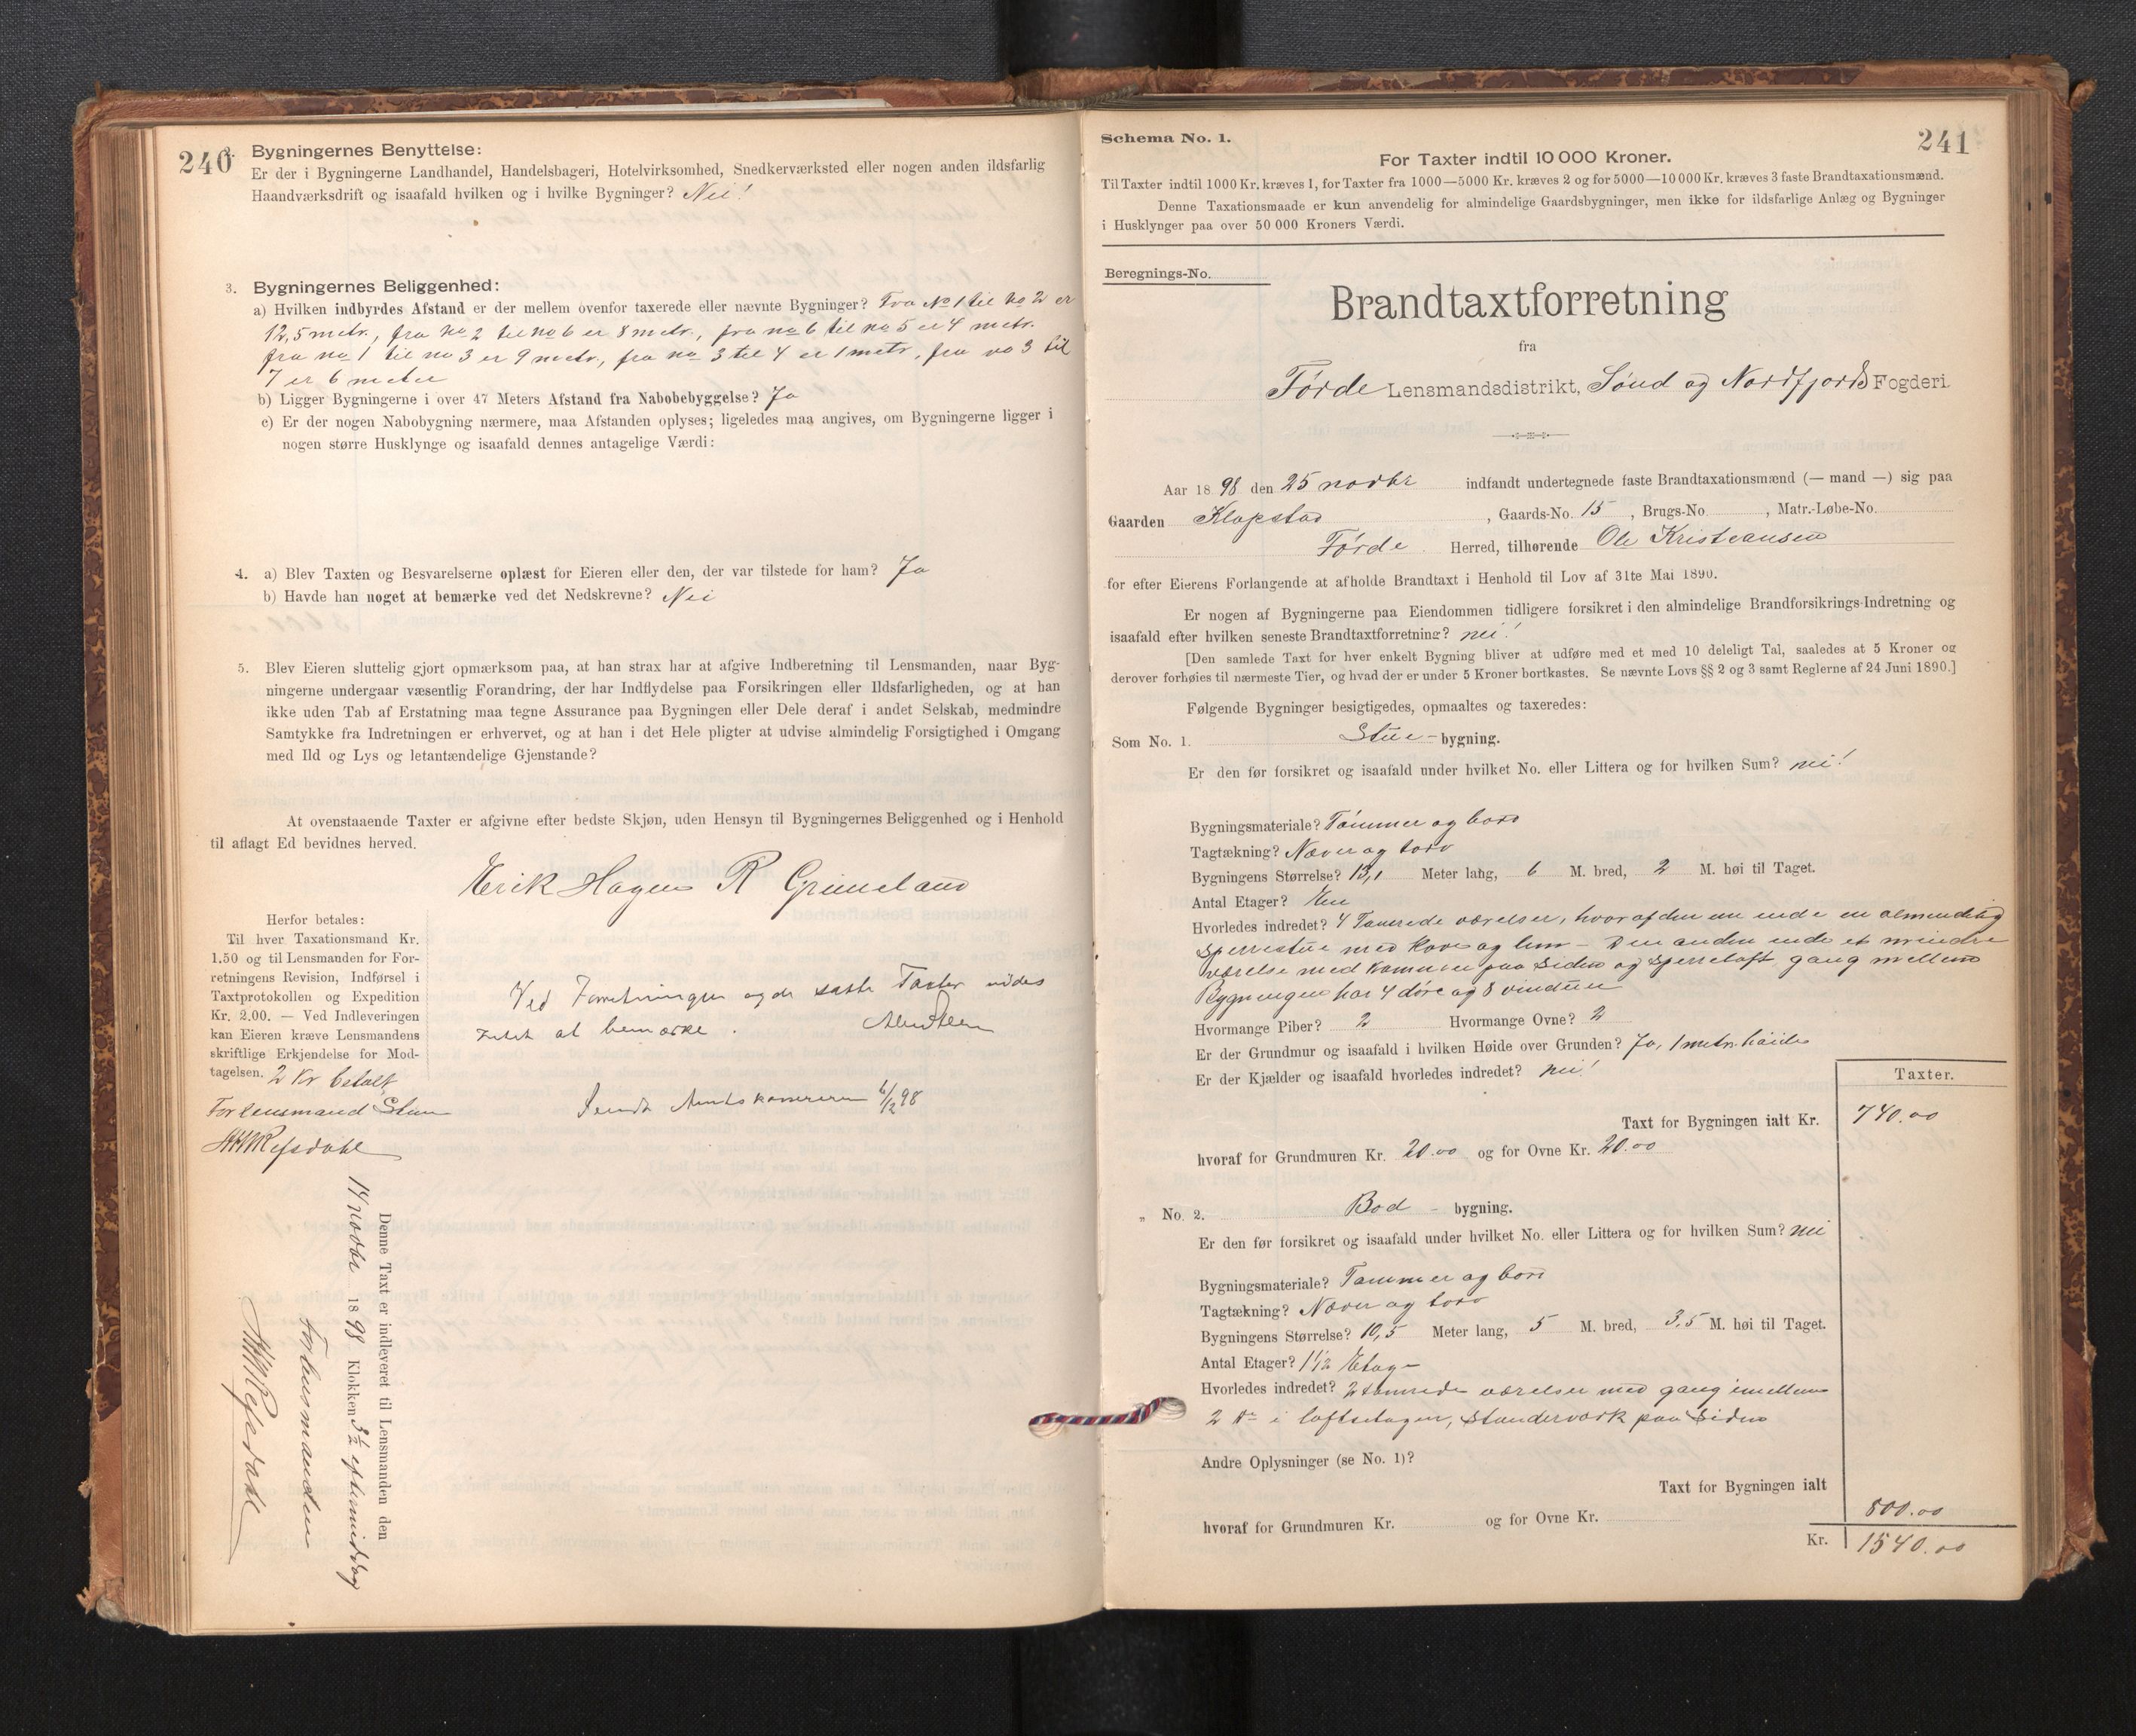 240
2. Bygningernes Benyttelse:
Er der i Bygningerne Landhandel, Handelsbageri, Hotelvirksomhed, Snedkerværksted eller nogen anden ildsfarlig
Haandværksdrift og isaafald hvilken og i hvilke Bygninger? Nei!
3. Bygningernes Beliggenhed:
a) Hvilken indbyrdes Afstand er der mellem ovenfor taxerede eller nævnte Bygninger? Fra No 1 til No 2 er
12,5 metr., fra no 2 til no 6 er 8 metr., fra no 6 til no 5 er 4 metr.
fra no 1 til no 3 er 9 metr., fra no 3 til 4 er 1 metr, fra no 3 til
7 er 6 meter
b) Ligger Bygningerne i over 47 Meters Afstand fra Nabobebyggelse? Ja
c) Er der nogen Nabobygning nærmere, maa Afstanden oplyses; ligeledes maa angives, om Bygningerne ligger i
nogen større Husklynge og isaafald dennes antagelige Værdi:
4. a) Blev Taxten og Besvarelserne oplæst for Eieren eller den, der var tilstede for ham? Ja
b) Havde han noget at bemærke ved det Nedskrevne? Nei
5. Blev Eieren sluttelig gjort opmærksom paa, at han strax har at afgive Indberetning til Lensmanden, naar Byg-
ningerne undergaar væsentlig Forandring, der har Indflydelse paa Forsikringen eller Ildsfarligheden, og at han
ikke uden Tab af Erstatning maa tegne Assurance paa Bygningen eller Dele deraf i andet Selskab, medmindre
Samtykke fra Indretningen er erhvervet, og at han i det Hele pligter at udvise almindelig Forsigtighed i Omgang
med Ild og Lys og letantændelige Gjenstande?
At ovenstaaende Taxter er afgivne efter bedste Skjøn, uden Hensyn til Bygningernes Beliggenhed og i Henhold
til aflagt Ed bevidnes herved.
Erik Hagen R Grimeland
Herfor betales:
Til hver Taxationsmand Kr.
1.50 og til Lensmanden for For-
retningens Revision, Indførsel i
Taxtprotokollen og Expedition
Kr. 2.00. — Ved Indleveringen
kan Eieren kræve Lensmandens
skriftlige Erkjendelse for Mod-
tagelsen. 2 Kr betalt
For lensmand
Refsdahl
Ved Forretningen og de satte Taxter vides
intet at bemærke.
Sendt Amtskassereren 6/12 98
Denne Taxt er indleveret til Lensmanden den
14 novbr 1898 Klokken 3½ eftermiddag
For lensmanden
Refsdahl
Schema No. 1.
241
For Taxter indtil 10 000 Kroner.
Til Taxter indtil 1000 Kr. kræves 1, for Taxter fra 1000—5000 Kr. kræves 2 og for 5000—10 000 Kr. kræves 3 faste Brandtaxationsmænd.
Denne Taxationsmaade er kun anvendelig for almindelige Gaardsbygninger, men ikke for ildsfarlige Anlæg og Bygninger
i Husklynger paa over 50 000 Kroners Værdi.
Beregnings-No.
Brandtaxtforretning
fra
Førde Lensmandsdistrikt, Sönd og Nordfjords Fogderi.
Aar 1898 den 25 novbr indfandt undertegnede faste Brandtaxationsmænd (— mand —) sig paa
Gaarden Klopstad, Gaards-No. 15, Brugs-No. , Matr.-Løbe-No.
Førde Herred, tilhørende Ole Kristiansen
for efter Eierens Forlangende at afholde Brandtaxt i Henhold til Lov af 31te Mai 1890.
Er nogen af Bygningerne paa Eiendommen tidligere forsikret i den almindelige Brandforsikrings-Indretning og
isaafald efter hvilken seneste Brandtaxtforretning? nei!
[Den samlede Taxt for hver enkelt Bygning bliver at udføre med et med 10 deleligt Tal, saaledes at 5 Kroner og
derover forhøies til nærmeste Tier, og hvad der er under 5 Kroner bortkastes. Se nævnte Lovs §§ 2 og 3 samt Reglerne af 24 Juni 1890.]
Følgende Bygninger besigtigedes, opmaaltes og taxeredes:
Som No. 1. Stue-bygning.
Er den før forsikret og isaafald under hvilket No. eller Littera og for hvilken Sum? nei!
Bygningsmateriale? Tømmer og bord
Tagtækning? Næver og torv
Bygningens Størrelse? 13,1 Meter lang, 6 M. bred, 2 M. høi til Taget.
Antal Etager? En
Hvorledes indredet? 4 Tømrede værelser, hvoraf den ene ende en almindelig
sperrestue med kove og lem - Den anden ende et mindre
værelse med kammer paa Siden og sperreloft, gang mellem
Bygningen har 4 døre og 8 vinduer
Hvormange Piber? 2 Hvormange Ovne? 2
Er der Grundmur og isaafald i hvilken Høide over Grunden? Ja, 1 metr. høide
Er der Kjælder og isaafald hvorledes indredet? nei!
Taxter.
Taxt for Bygningen ialt Kr. 740.00
hvoraf for Grundmuren Kr. 20.00 og for Ovne Kr. 20.00
„ No. 2. Bod - bygning.
Er den før forsikret og isaafald under hvilket No. eller Littera og for hvilken Sum? nei
Bygningsmateriale? Tømmer og bord
Tagtækning? Næver og torv
Bygningens Størrelse? 10,5 Meter lang, 5 M. bred, 3,5 M. høi til Taget.
Antal Etager? 1½ Etage
Hvorledes indredet? 2 tømrede værelser med gang imellem
2 do i loftsetagen, standerværk paa Siden
Andre Oplysninger (se No. 1)?
Taxt for Bygningen ialt
800.00
hvoraf for Grundmuren Kr. og for Ovne Kr.
Kr. 1540.00